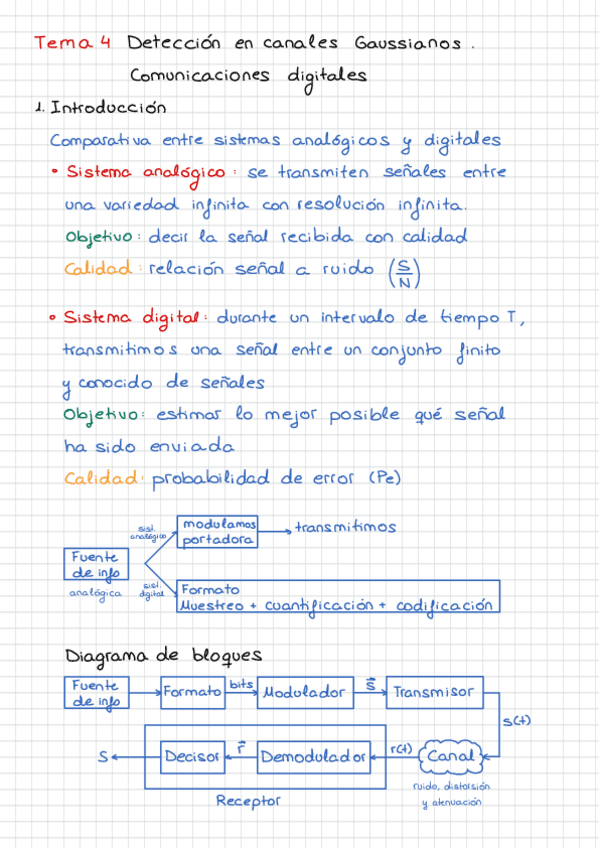 Tema 4 Detección en canales Gaussianos.
Comunicaciones digitales
1. Introducción
Comparativa entre sistemas analógicos y digitales
• Sistema analógico: se transmiten señales entre
una variedad infinita con resolución infinita.
Objetivo: decir la señal recibida con calidad
Calidad: relación señal a ruido (S/N)
• Sistema digital: durante un intervalo de tiempo T,
transmitimos una señal entre un conjunto finito
y conocido de señales
Objetivo: estimar lo mejor posible qué señal
ha sido enviada
Calidad: probabilidad de error (Pe)
sist. analógico
modulamos portadora
transmitimos
Fuente de info
analógica
sist. digital
Formato
Muestreo + cuantificación + codificación
Diagrama de bloques
Fuente de info
Formato
bits
Modulador
s⃗
Transmisor
s(t)
S
Decisor
r⃗
Demodulador
r(t)
Canal
ruido, distorsión
y atenuación
Receptor